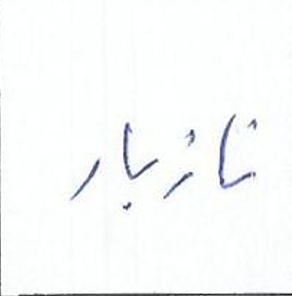 نازبار